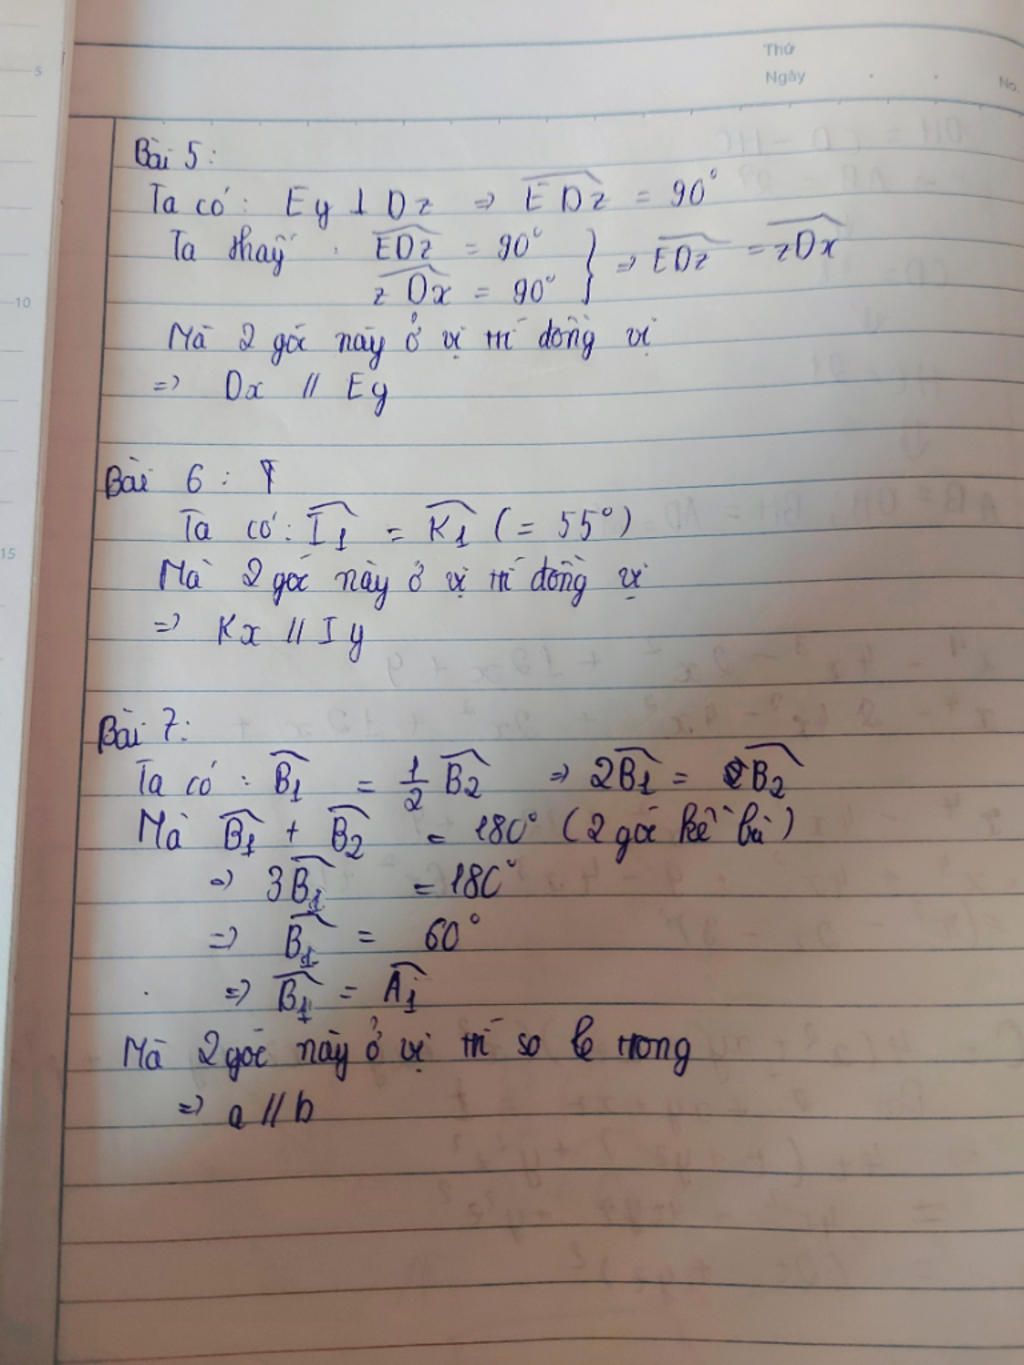 Thứ
Ngày
No.
5
10
15
Bài 5:
Ta có: Ey ⊥ Dz ⇒ \widehat{EDz} = 90°
Ta thấy: \widehat{EDz} = 90°
\widehat{zDx} = 90° } ⇒ \widehat{EDz} = \widehat{zDx}
Mà 2 góc này ở vị trí đồng vị
⇒ Dx // Ey
Bài 6:
Ta có: \widehat{I_1} = \widehat{K_1} (= 55°)
Mà 2 góc này ở vị trí đồng vị
⇒ Kx // Iy
Bài 7:
Ta có: \widehat{B_1} = \frac{1}{2} \widehat{B_2} ⇒ 2\widehat{B_1} = \widehat{B_2}
Mà \widehat{B_1} + \widehat{B_2} = 180° (2 góc kề bù)
⇒ 3\widehat{B_1} = 180°
⇒ \widehat{B_1} = 60°
⇒ \widehat{B_1} = \widehat{A_1}
Mà 2 góc này ở vị trí so le trong
⇒ a // b